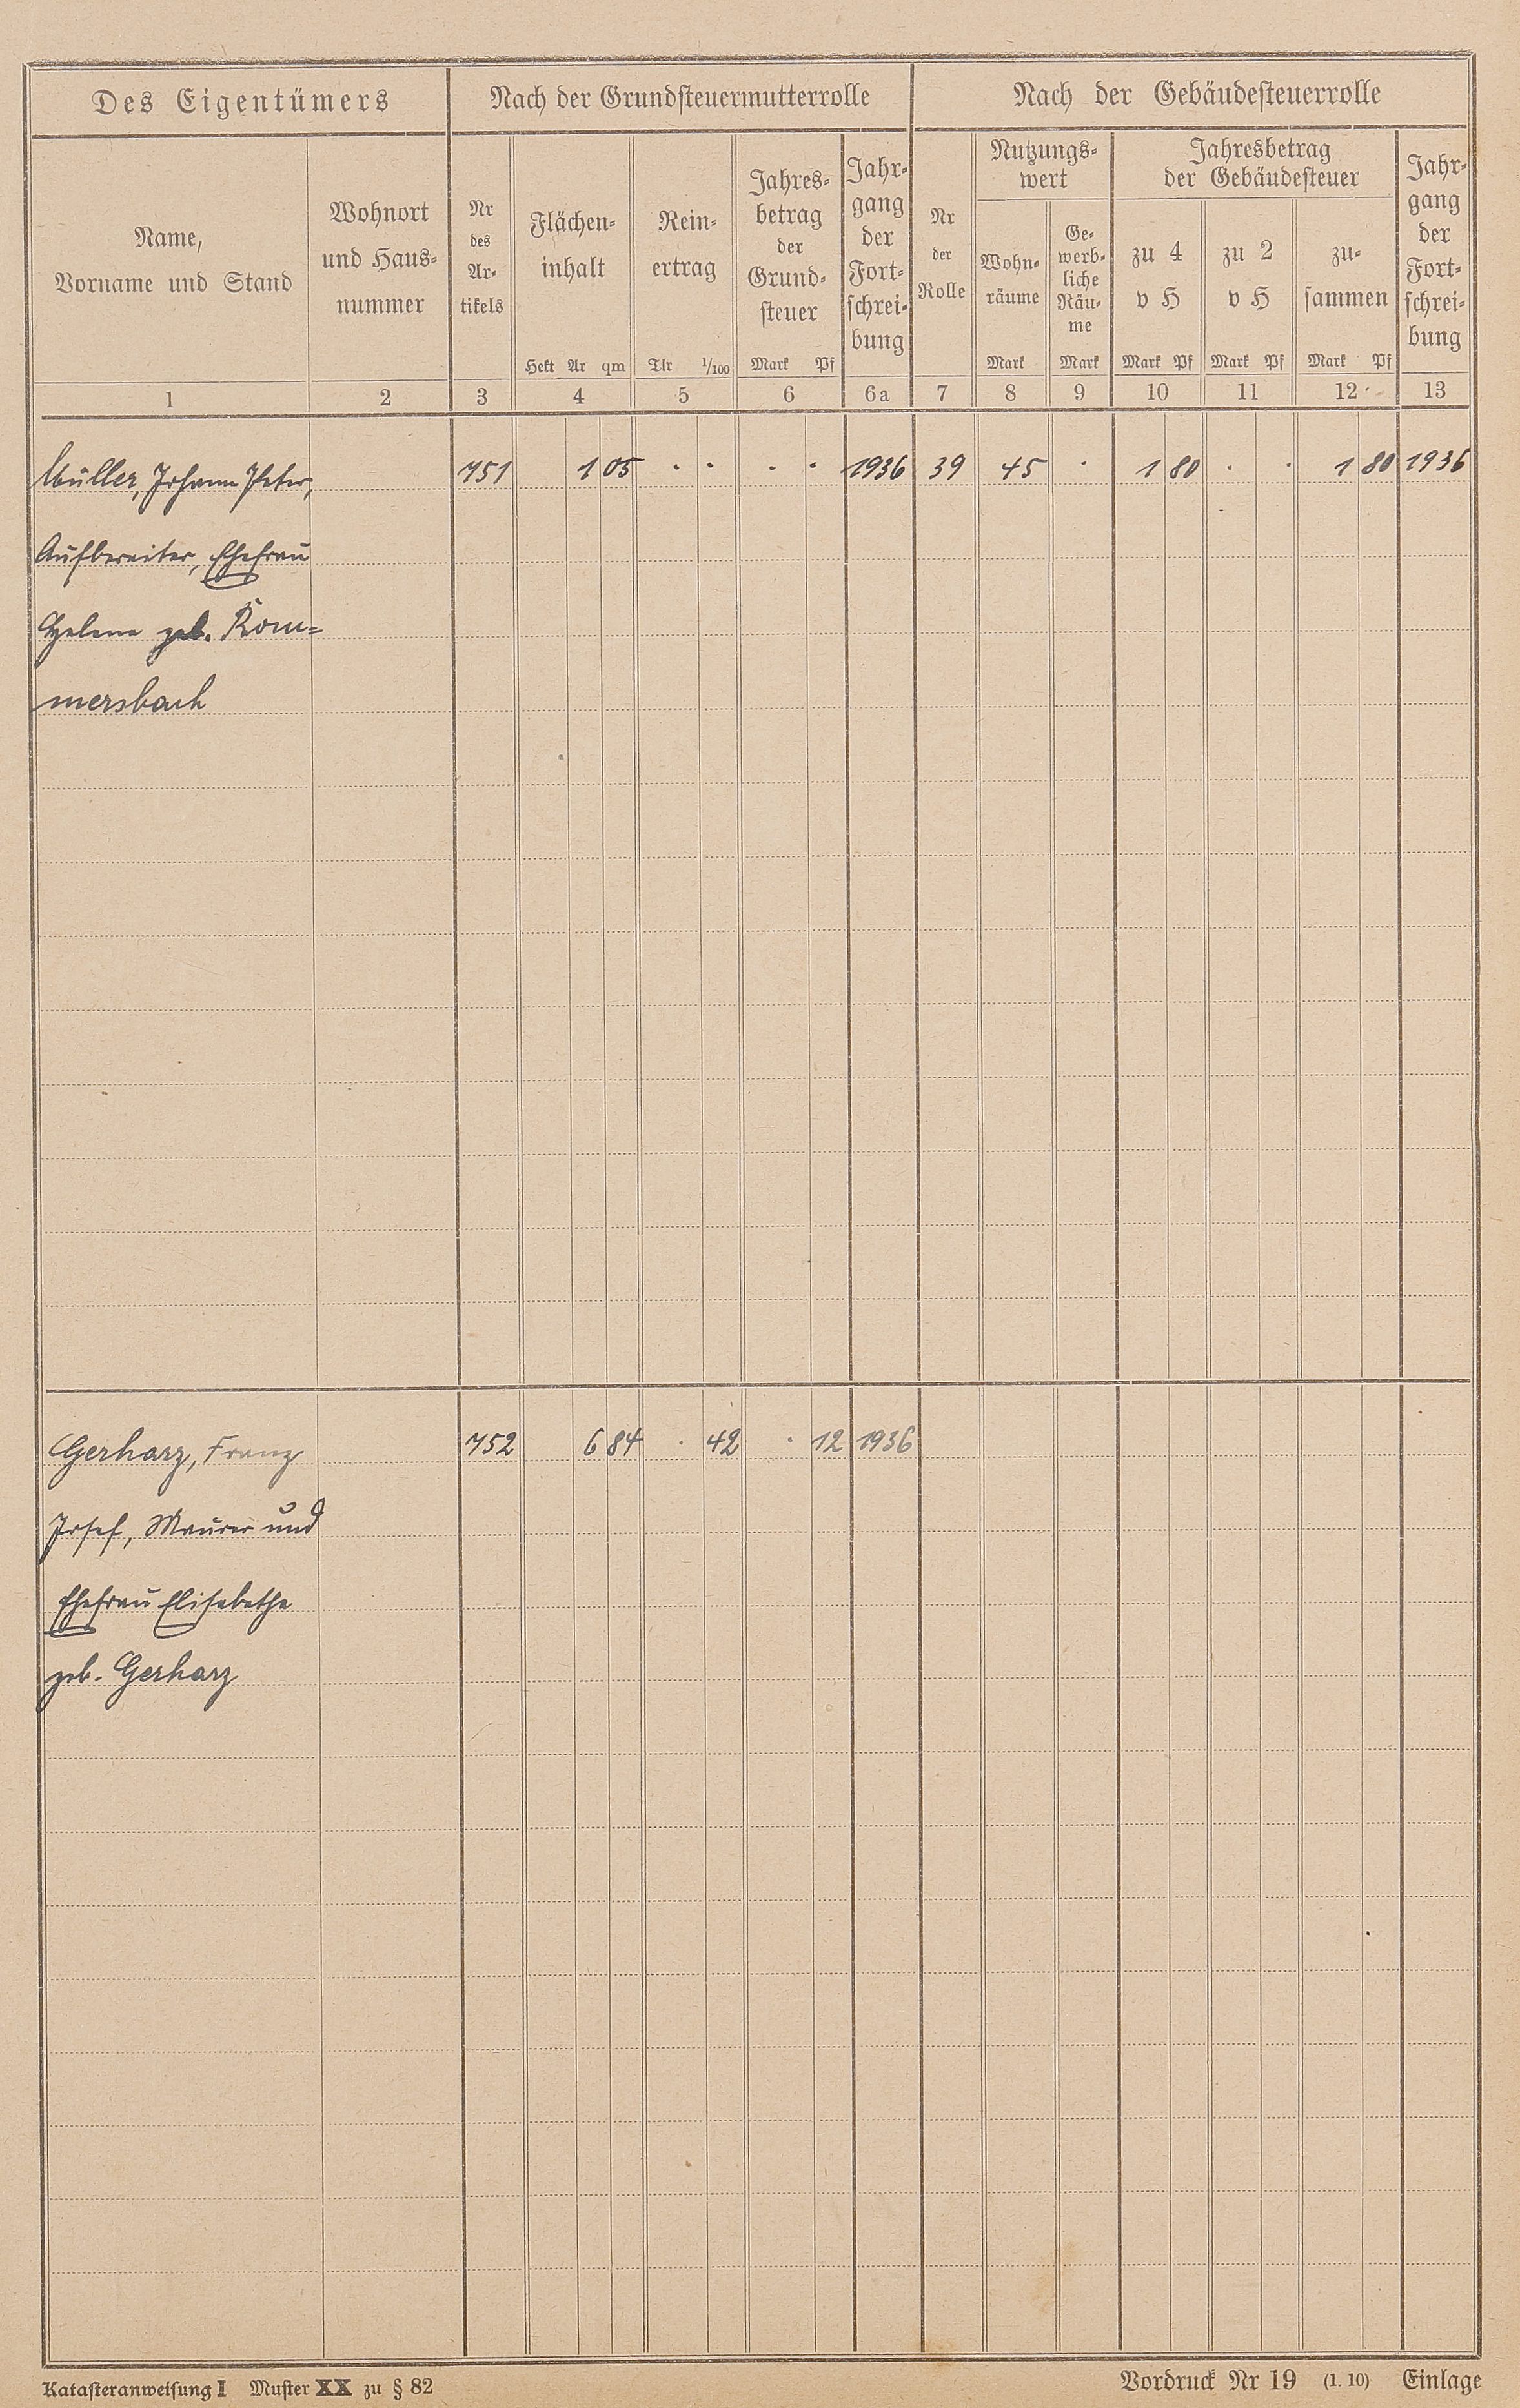 Des Eigentümers
Nach der Grundsteuermutterrolle
Nach der Gebäudesteuerrolle
Name,
Vorname und Stand
Wohnort
und Haus-
nummer
Nr
des
Ar-
tikels
Flächen-
inhalt
Hekt Ar qm
Rein-
ertrag
Tlr 1/100
Jahres-
betrag
der
Grund-
steuer
Mark Pf
Jahr-
gang
der
Fort-
schrei-
bung
Nr
der
Rolle
Nutzungs-
wert
Wohn-
räume
Mark
Ge-
werb-
liche
Räu-
me
Mark
Jahresbetrag
der Gebäudesteuer
zu 4
v H
Mark Pf
zu 2
v H
Mark Pf
zu-
sammen
Mark Pf
Jahr-
gang
der
Fort-
schrei-
bung
1 2 3 4 5 6 6a 7 8 9 10 11 12 13
Müller, Johann Peter, 751 1 05 . . . . 1936 39 45 . 1 80 . . 1 80 1936
Aufbereiter, Ehefrau
Helene geb. Rom-
mersbach
Gerharz, Franz 752 6 84 . 42 . 12 1936
Josef, Maurer und
Ehefrau Elisabethe
geb. Gerharz
Katasteranweisung I Muster XX zu § 82
Vordruck Nr 19 (1. 10) Einlage